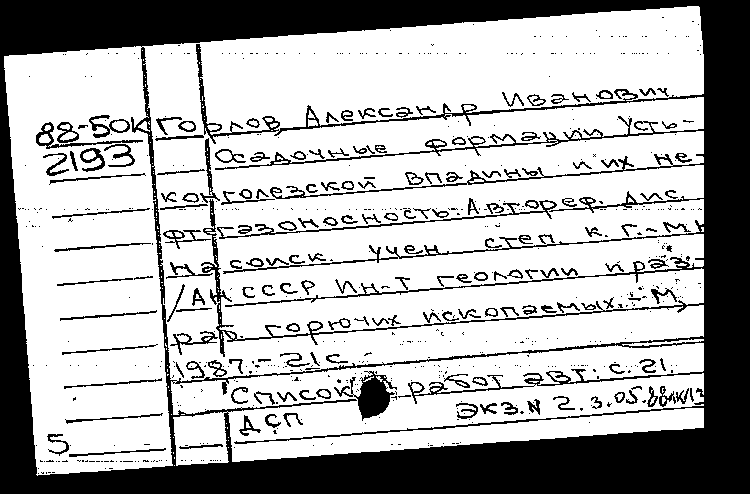 88-50К Горлов, Александр Иванович
2193 Осадочные формации Усть-
конголезской впадины и их не-
фтегазоносность: Автореф. дис.
на соиск. учен. степ. к. г.-м.
/АН СССР, Ин-т геологии и раз-
раб. горючих ископаемых. - М,
1987. - 21с. -
Список работ авт.: с. 21.
ДСП Экз. N 2. 3.05.88
5